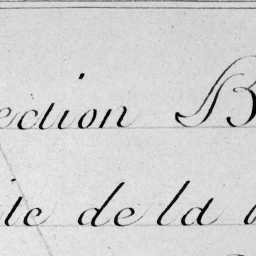 ection B
ite de la